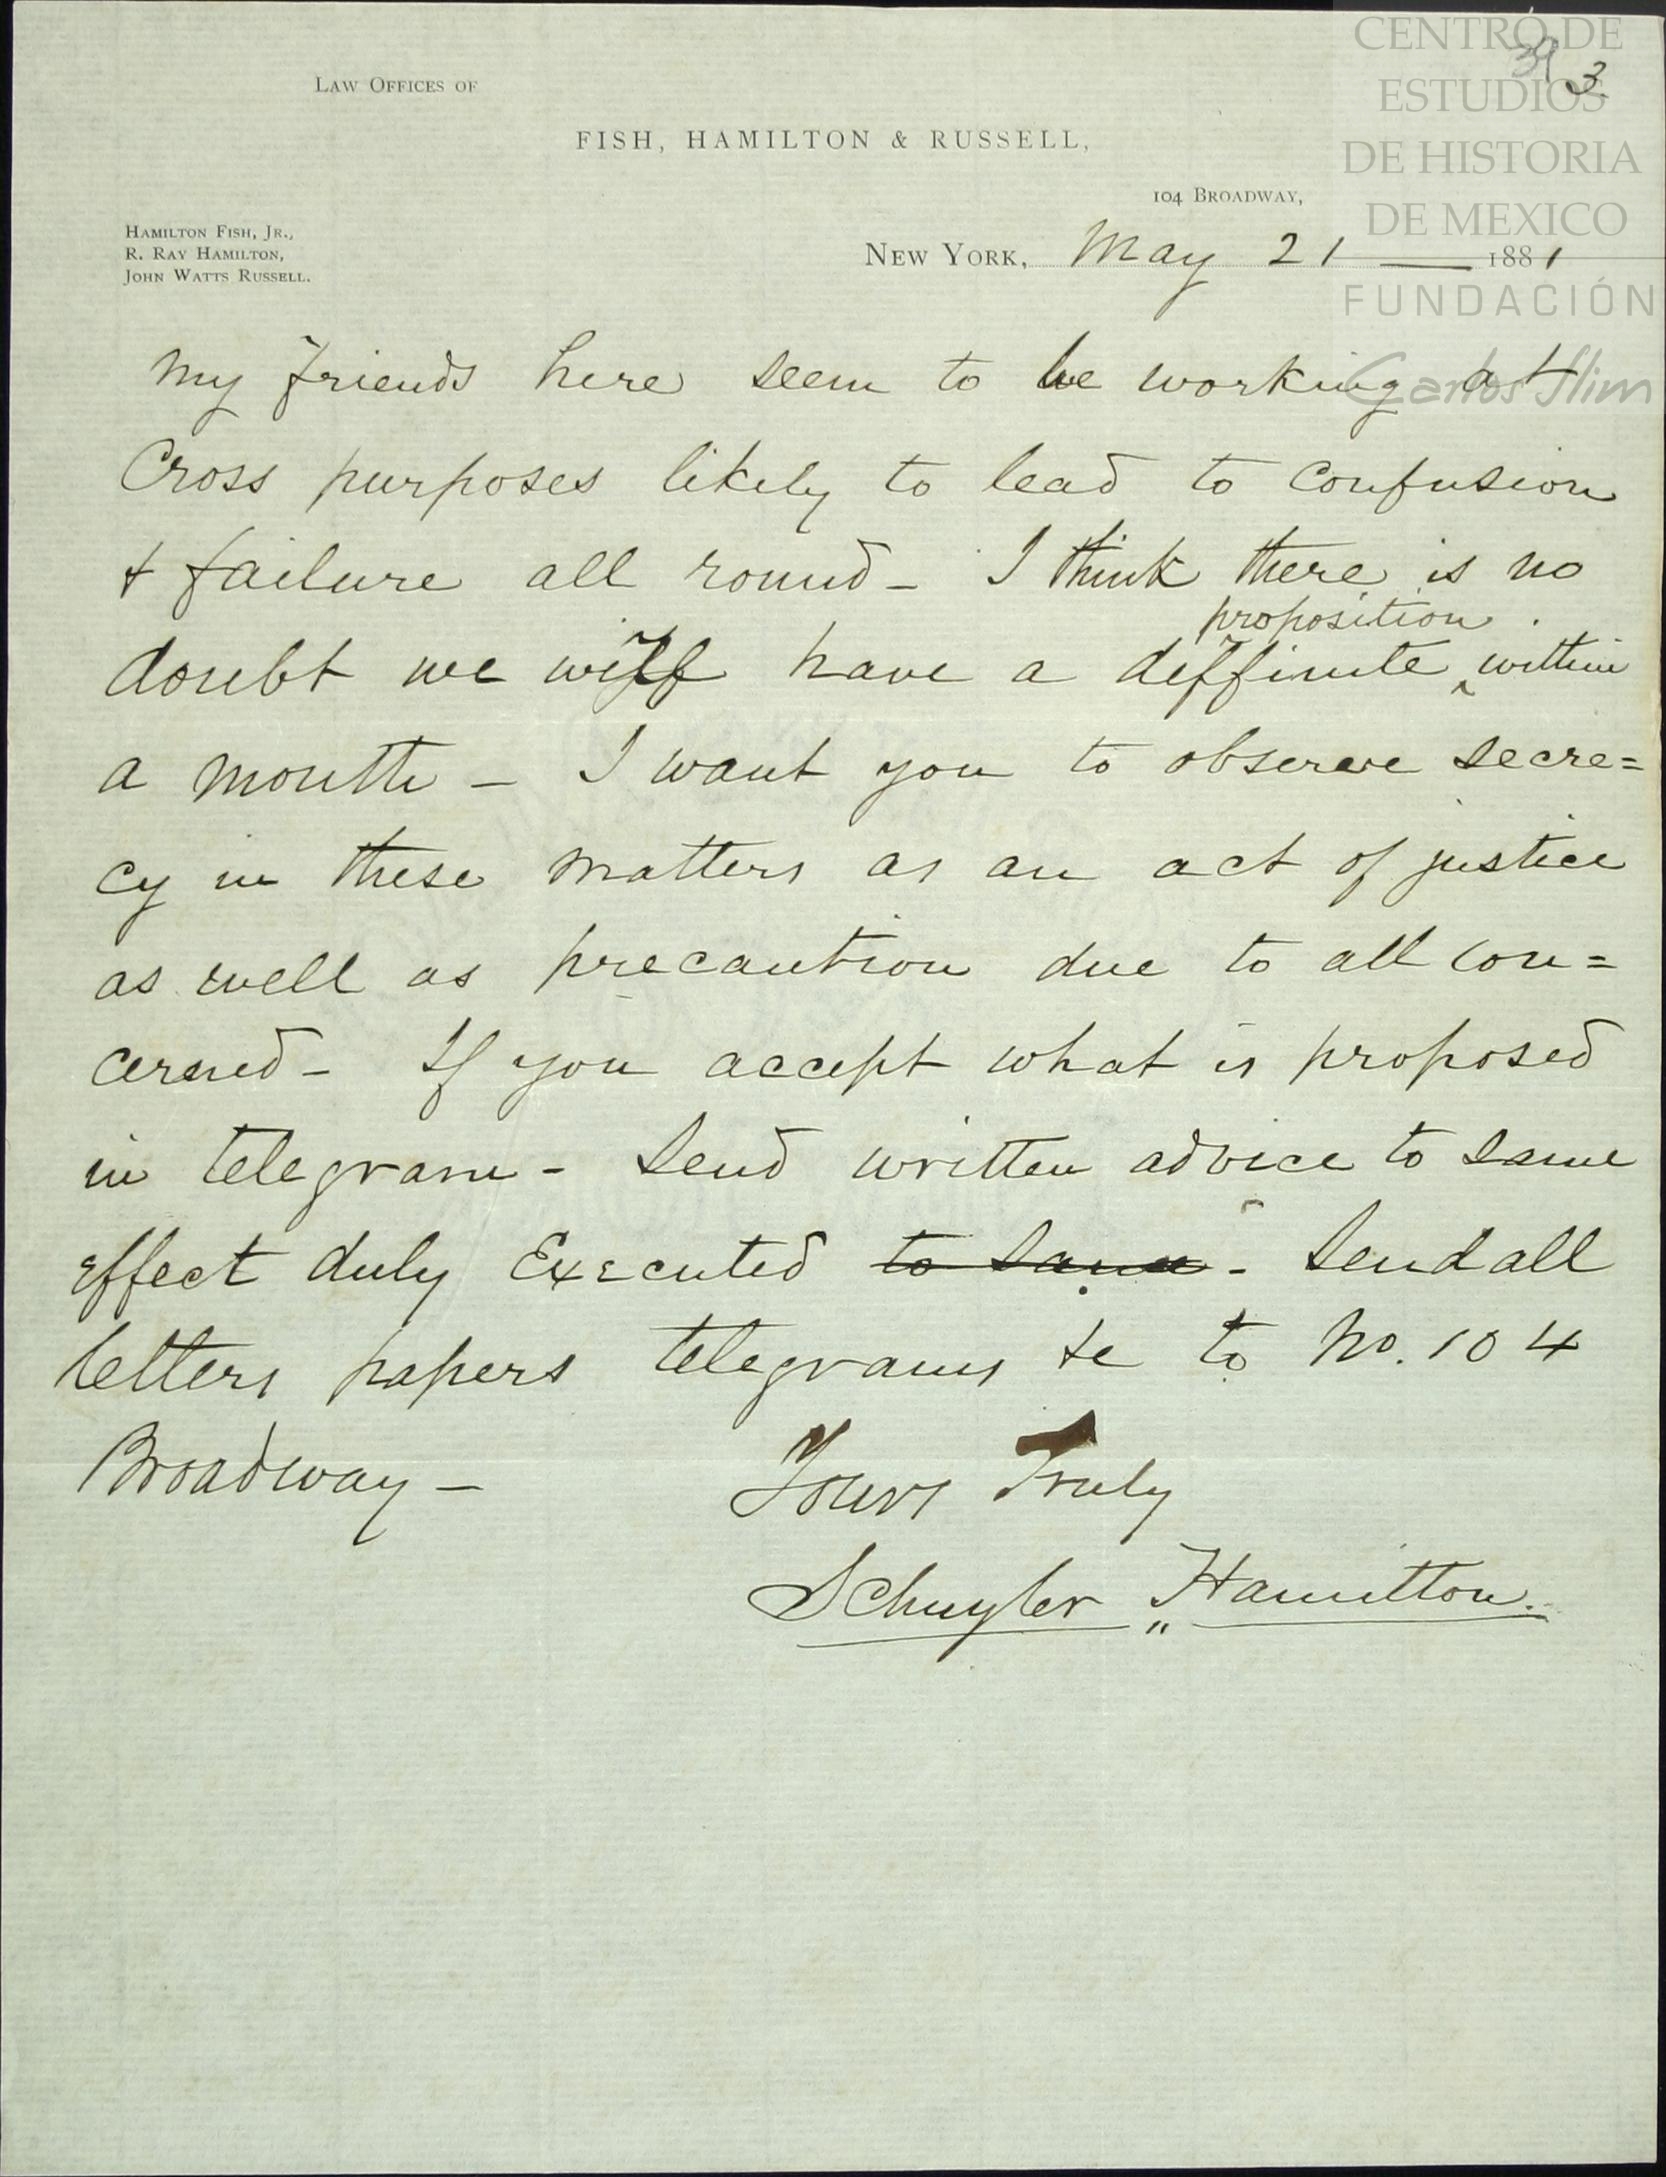 CENTRO DE
ESTUDIOS
DE HISTORIA
DE MEXICO
FUNDACIÓN
Carlos Slim
39 3.
LAW OFFICES OF
FISH, HAMILTON & RUSSELL,
104 BROADWAY,
HAMILTON FISH, JR.,
R. RAY HAMILTON,
JOHN WATTS RUSSELL.
NEW YORK, May 21 — 1881
My friends here seem to be working at
Cross purposes likely to lead to confusion
& failure all round - I think there is no
proposition.
doubt we will have a deffinite ^ within
a month - I want you to observe secre=
cy in these matters as an act of justice
as well as precaution due to all con=
cerned - If you accept what is proposed
in telegram - Send written advice to same
effect duly Executed to same - Send all
letters papers telegrams &c to No. 104
Broadway -
Yours Truly
Schuyler Hamilton.